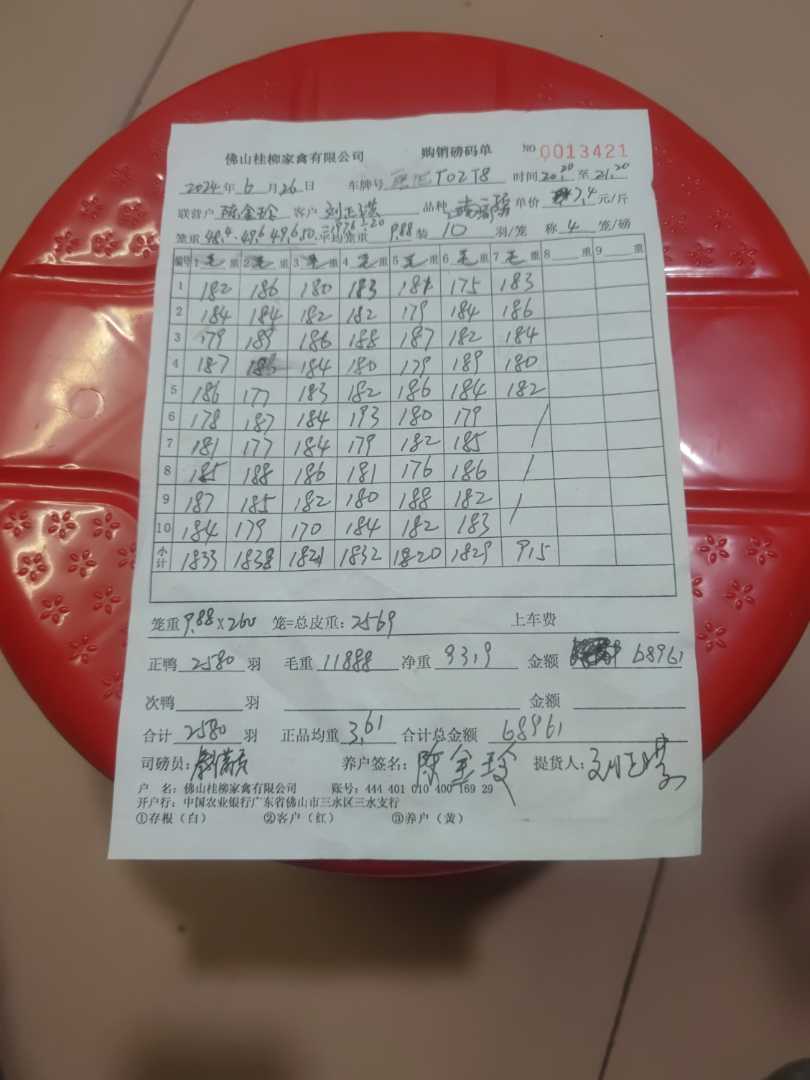 佛山桂柳家禽有限公司 购销磅码单 NO 0013421
2024年6月26日 车牌号 T02T8 时间20:20至21:20
联营户 陈金玲 客户 品种 单价 7.4 元/斤
笼重 48.4. 49.6 49.6 50. 平均笼重 9.88 装 10 羽/笼 称 4 笼/磅
编号 1 毛 重 2 毛 重 3 毛 重 4 毛 重 5 毛 重 6 毛 重 7 毛 重 8 重 9 重
1 182 186 180 183 181 175 183
2 184 184 182 182 179 184 186
3 179 189 186 188 187 182 184
4 187 184 180 179 189 180
5 186 177 183 182 186 184 182
6 178 187 184 193 180 179 /
7 181 177 184 179 182 185
8 185 188 186 181 176 186 /
9 187 185 182 180 188 182 /
10 184 179 170 184 182 183
小计 1833 1838 1821 1832 1820 1829 915
笼重 9.88 x 260 笼=总皮重: 2569 上车费
正鸭 2580 羽 毛重 11888 净重 9319 金额 68961
次鸭 羽 金额
合计 2580 羽 正品均重 3.61 合计总金额 68961
司磅员: 养户签名: 陈金玲 提货人:
户 名: 佛山桂柳家禽有限公司 账号: 444 401 010 400 169 29
开户行: 中国农业银行广东省佛山市三水区三水支行
①存根(白) ②客户(红) ③养户(黄)